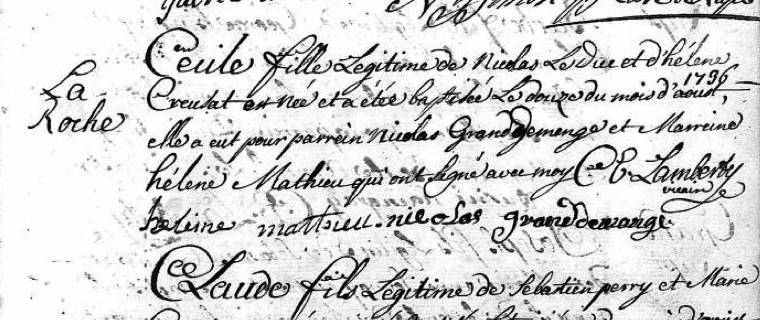 La
Roche
Cecile fille Legitime de Nicolas Le Duc et d'hélene
Creusat est née et a étée baptisée Le douze du mois d'aoust, 1736
elle a eut pour parrein Nicolas Grand demenge et Marreine
hélene Mathieu qui ont signé avec moy C E Lamberty
vicaire
heleine mattieu. nicolas grand demange
Claude fils Legitime de Sebastien perry et Marie